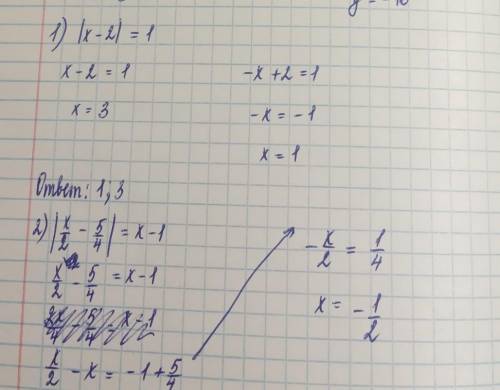 1) |x-2| = 1
x-2 = 1
x = 3
-x+2 = 1
-x = -1
x = 1
Ответ: 1; 3
2) |x/2 - 5/4| = x-1
x/2 - 5/4 = x-1
x/2 - x = -1 + 5/4
-x/2 = 1/4
x = -1/2